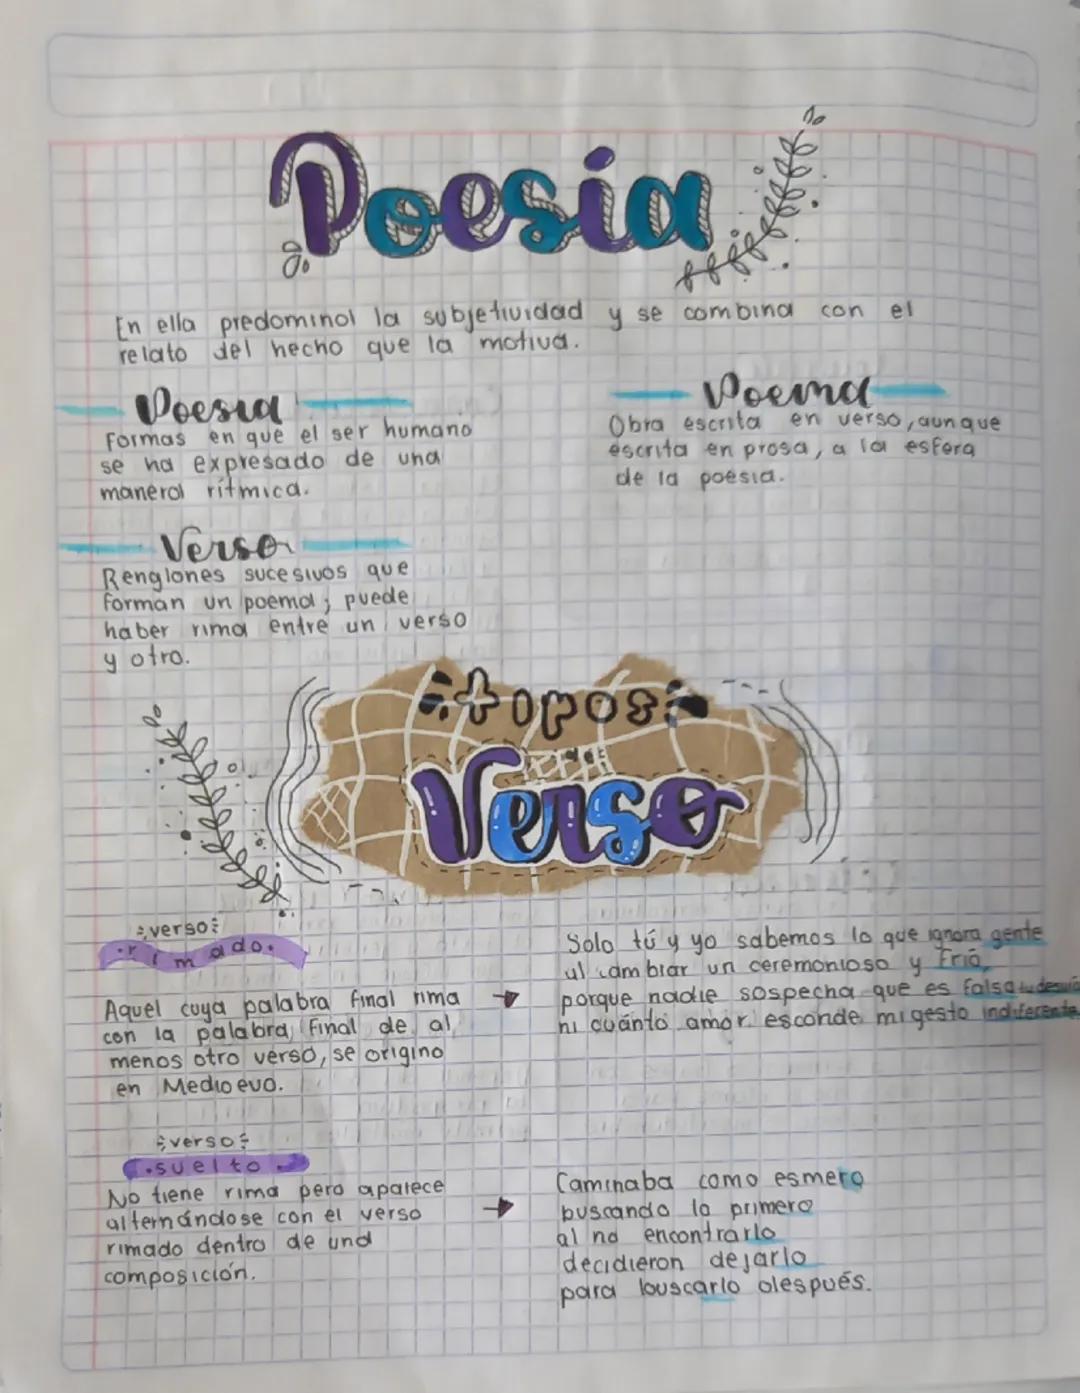 Poesia
En ella predomina la subjetividad y se combina con el
relato del hecho que la motiva.
Poesia
Formas en que el ser humano
se ha expresado de una
manera rítmica.
Poema
Obra escrita en verso, aunque
escrita en prosa, a la esfera
de la poesia.
Verso
Renglones sucesivos que
forman un poema; puede
haber rima entre un verso
y otro.
tipos
de
Verso
verso
rimado.
Aquel cuya palabra final rima
con la palabra final de al
menos otro verso, se origino
en Medioevo.
Solo tú y yo sabemos lo que ignora gente
al cambiar un ceremonioso y Frió,
porque nadie sospecha que es falsa tu desvio
ni cuánto amor esconde mi gesto indiferente
verso
.suelto.
No tiene rima pero aparece
alternándose con el verso
rimado dentro de una
composición.
Caminaba como esmero
buscando lo primero
al no encontrarlo
decidieron dejarlo
para buscarlo después.